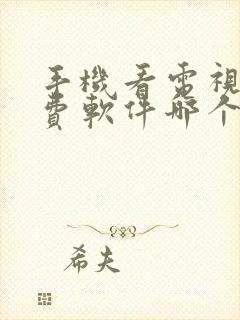 手機看電視
費軟件哪个
希夫